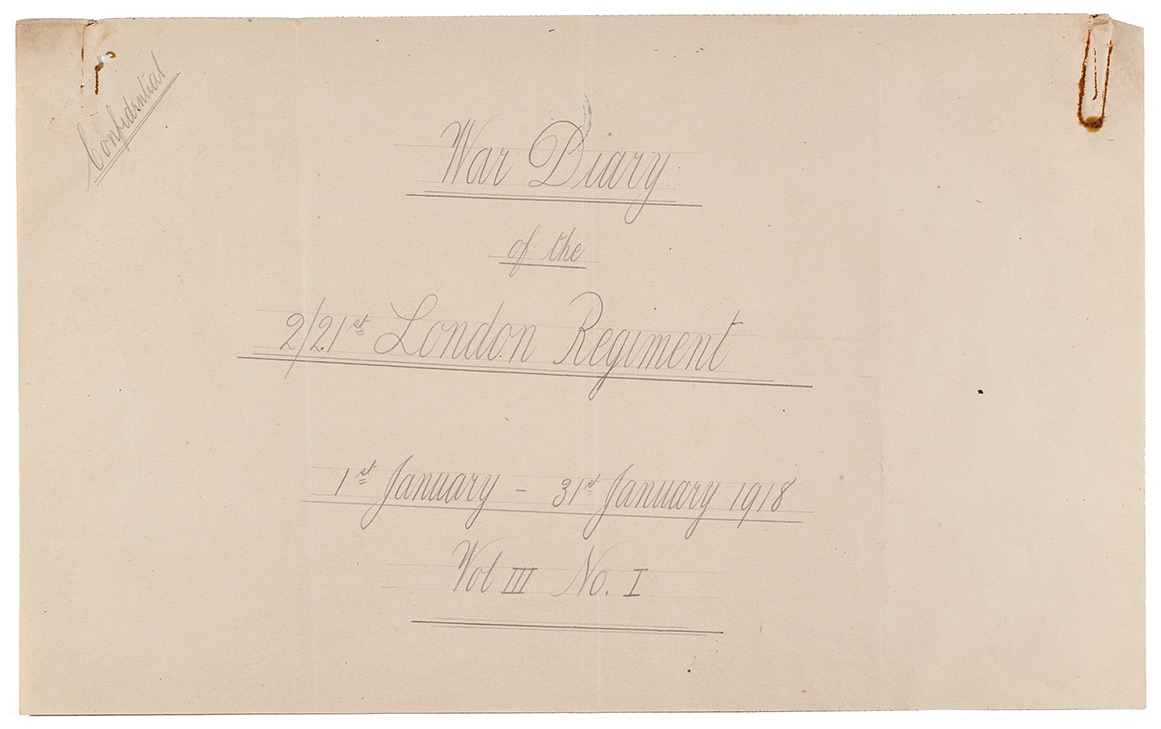 Confidential
War Diary
of the
2/21st London Regiment
1st January - 31st January 1918
Vol III No. I